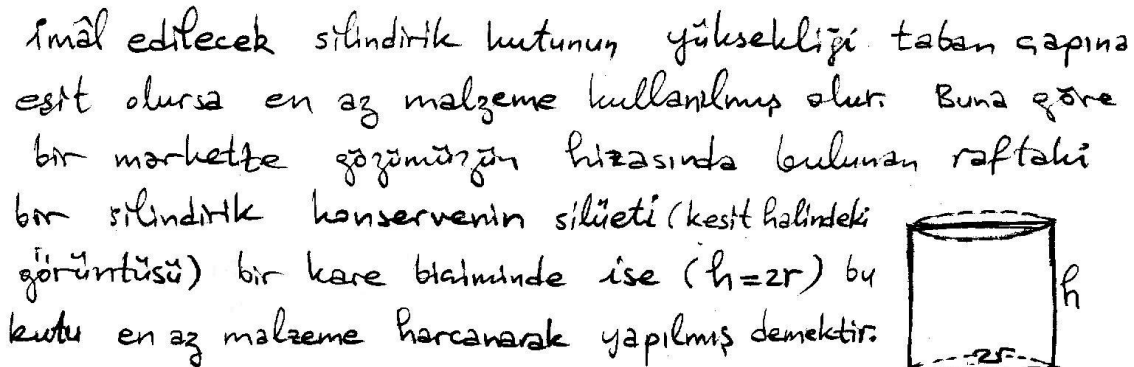 İmâl edilecek silindirik kutunun yüksekliği taban çapına
eşit olursa en az malzeme kullanılmış olur. Buna göre
bir markette gözümüzün hizasında bulunan raftaki
bir silindirik konservenin silüeti (kesit halindeki
görüntüsü) bir kare biçiminde ise (h=2r) bu
kutu en az malzeme harcanarak yapılmış demektir.
h
2r